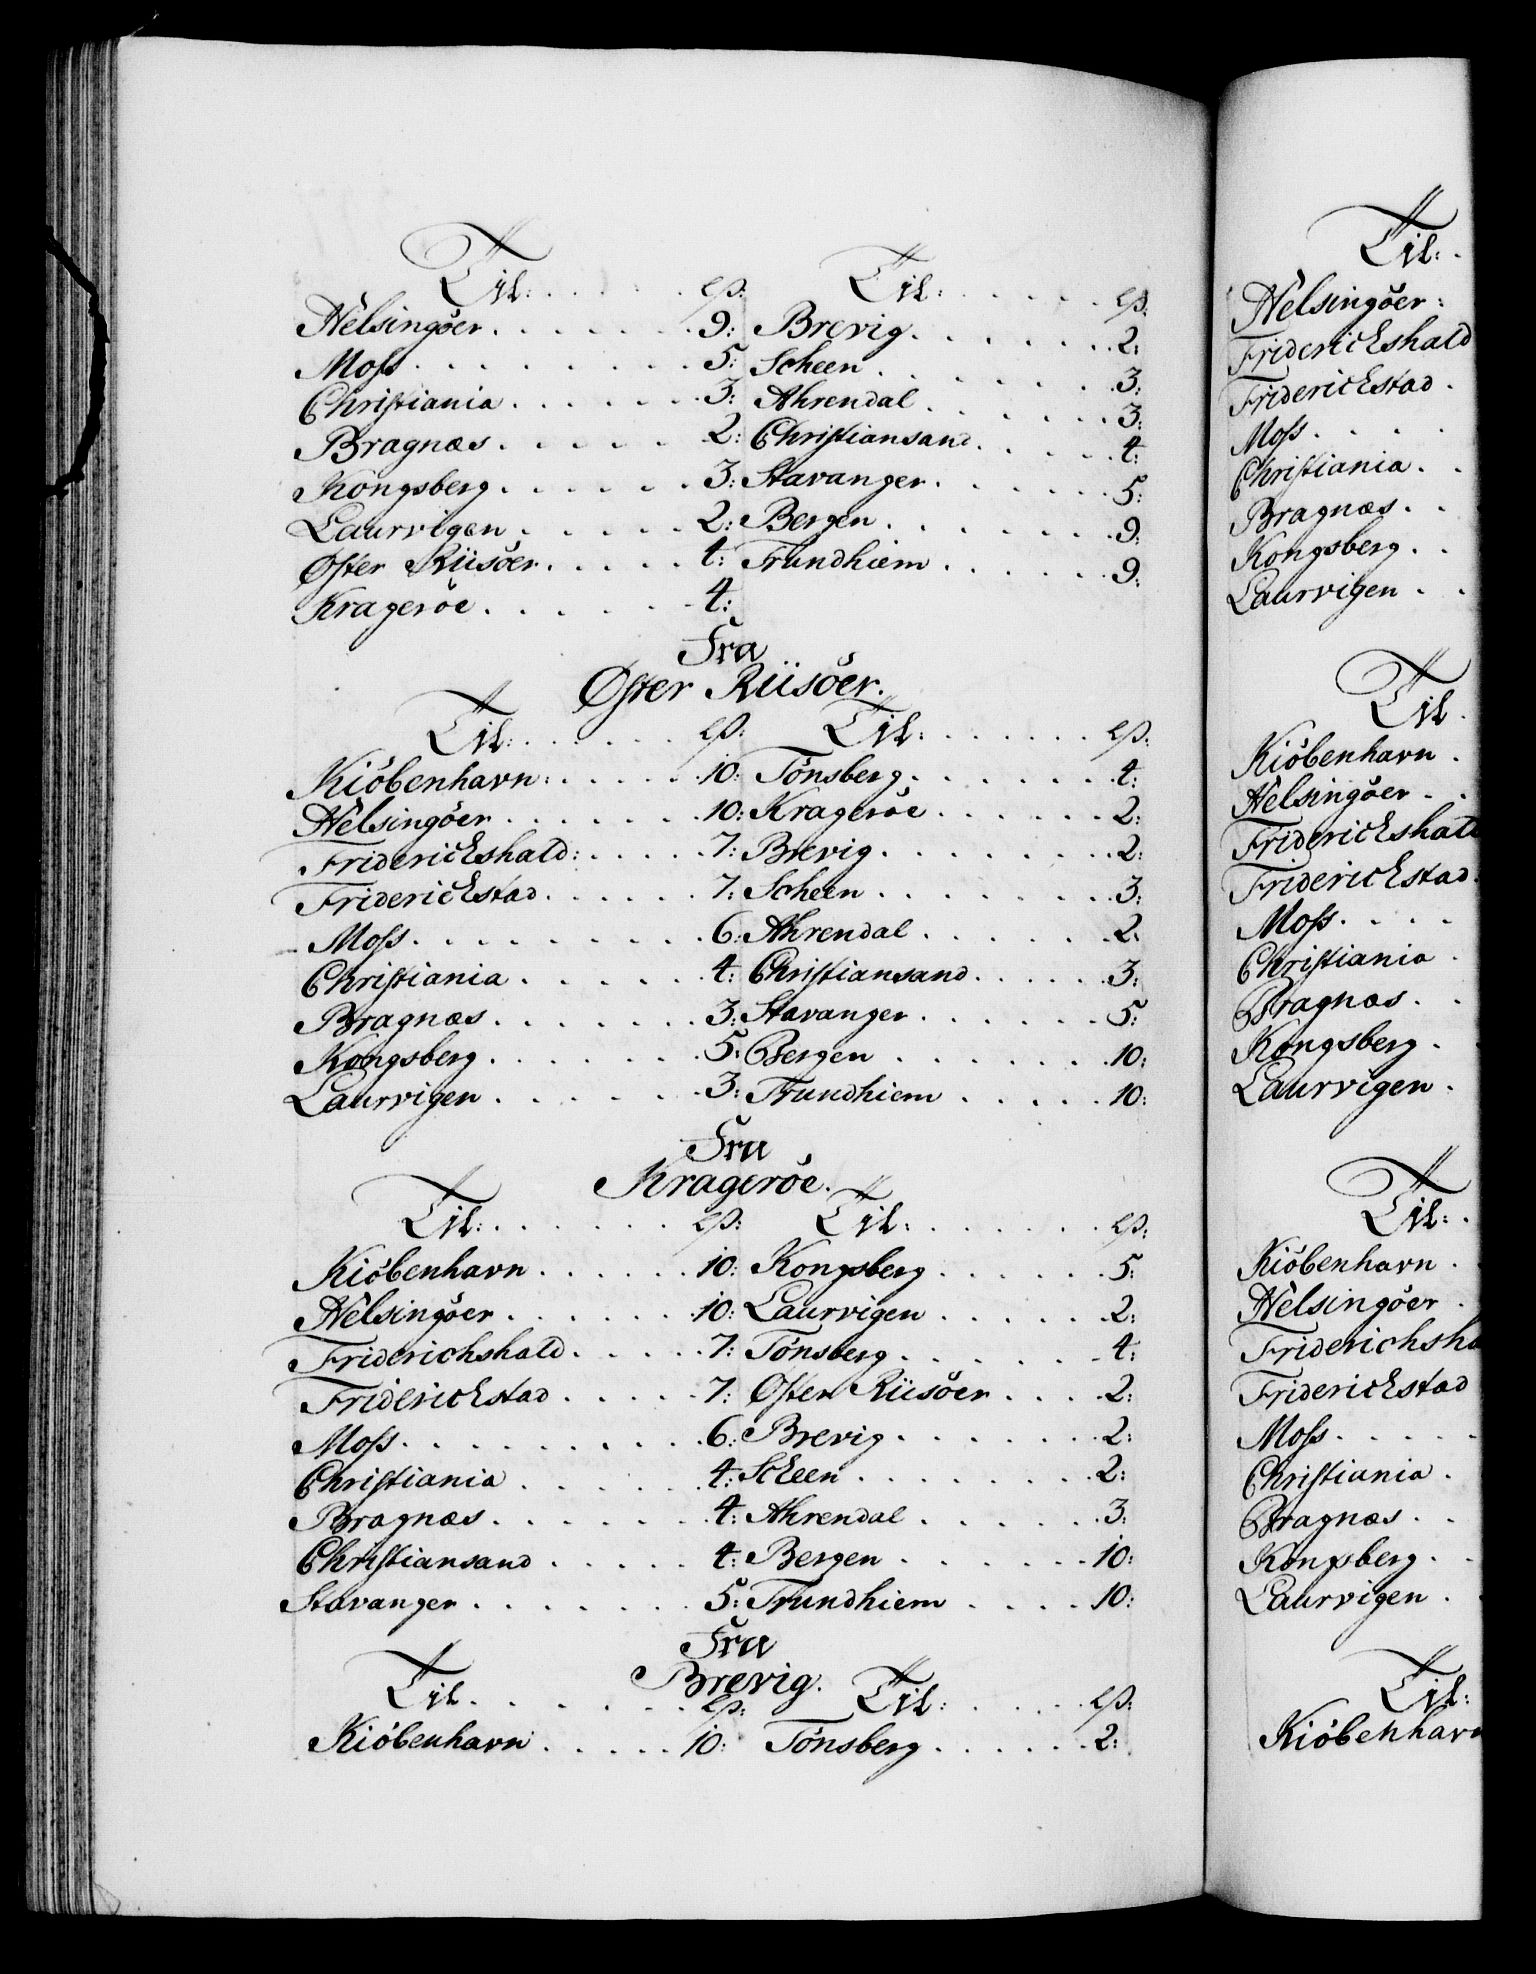 Til: . . . . . . ẜ: Til: . . . . . . ẜ:
Helsingöer . . . . . . 9: Brevig . . . . . . 2:
Moss . . . . . . . . 5: Scheen . . . . . . 3:
Christiania . . . . . . 3: Ahrendal . . . . . . 3:
Bragnæs . . . . . . 2: Christiansand . . . . . 4:
Kongsberg . . . . . . 3: Stavanger . . . . . . 5:
Laurvigen . . . . . . 2: Bergen . . . . . . 9:
Øster Riisöer . . . . . 4: Trundhiem . . . . . . 9:
Krageröe . . . . . . 4:
Fra
Øster Riisöer.
Til: . . . . . . ẜ: Til: . . . . . . ẜ:
Kiöbenhavn: . . . . . 10: Tönsberg . . . . . . 4:
Helsingöer . . . . . . 10: Krageröe . . . . . . 2:
Friderichshald: . . . . . 7: Brevig . . . . . . 2:
Friderichstad . . . . . 7: Scheen . . . . . . 3:
Moss . . . . . . . . 6: Ahrendal . . . . . . 2:
Christiania . . . . . . 4: Christiansand . . . . . 3:
Bragnæs . . . . . . 3: Stavanger . . . . . . 5:
Kongsberg . . . . . . 5: Bergen . . . . . . 10:
Laurvigen . . . . . . 3: Trundhiem . . . . . 10:
Fra
Krageröe.
Til: . . . . . . ẜ: Til: . . . . . . ẜ:
Kiöbenhavn . . . . . 10: Kongsberg . . . . . . 5:
Helsingöer . . . . . . 10: Laurvigen . . . . . 2:
Friderichshald . . . . . 7: Tönsberg . . . . . . 4:
Friderichstad . . . . . 7: Øster Riisöer . . . . 2:
Moss . . . . . . . . 6: Brevig . . . . . . 2:
Christiania . . . . . . 4: Scheen . . . . . . 2:
Bragnæs . . . . . . 4: Ahrendal . . . . . . 3:
Christiansand . . . . . 4: Bergen . . . . . . 10:
Stavanger . . . . . . 5: Trundhiem . . . . 10:
Fra
Brevig.
Til . . . . . . ẜ: Til: . . . . . ẜ:
Kiöbenhavn . . . . . 10: Tönsberg . . . . . . 2:
Til: .
Helsingöer :
Friderichshald
Friderichstad .
Moss . . . .
Christiania . .
Bragnæs . .
Kongsberg . .
Laurvigen . .
Til .
Kiöbenhavn .
Helsingöer . .
Friderichshald
Friderichstad .
Moss . . . .
Christiania .
Bragnæs . .
Kongsberg .
Laurvigen .
Til: .
Kiöbenhavn .
Helsingöer .
Friderichsha
Friderichstad
Moss . . . . .
Christiania .
Bragnæs . .
Kongsberg . .
Laurvigen . .
Til:
Kiöbenhavn